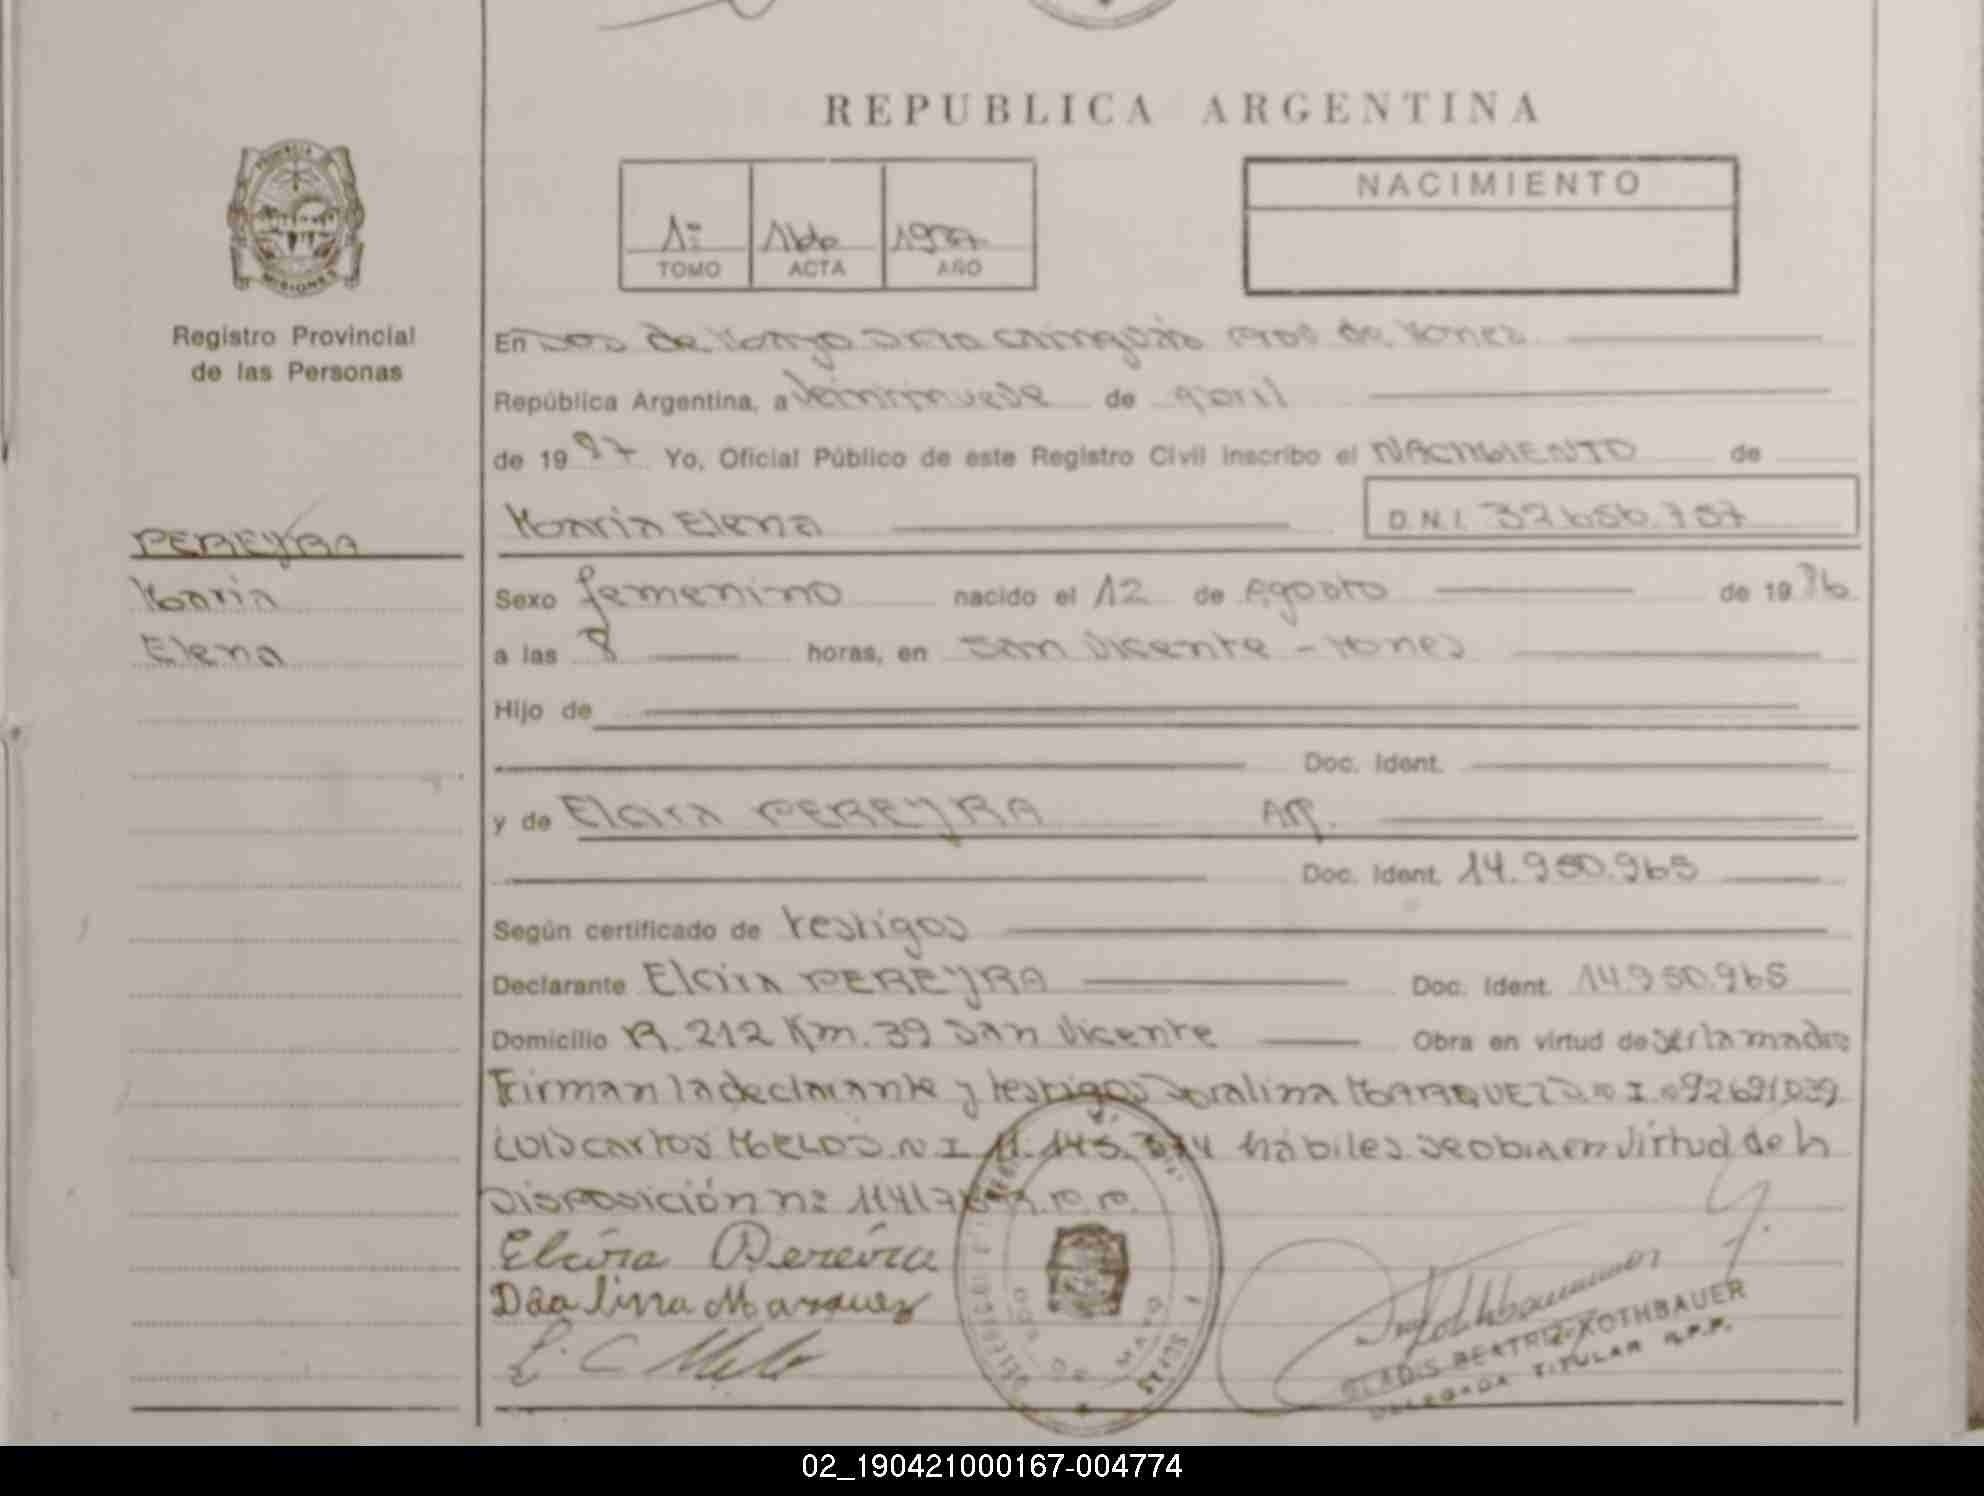 REPUBLICA ARGENTINA
NACIMIENTO
1º 1997
TOMO ACTA AÑO
Registro Provincial
de las Personas
En Dos de Mayo Dpto Cainguás Pros de Mones
República Argentina, a Veintinueve de abril
de 1997 Yo, Oficial Público de este Registro Civil inscribo el NACIMIENTO de
María Elena D.N.I. 32.656.757
PEREYRA
María
Elena
Sexo femenino nacido el 12 de Agosto de 19
a las 8 horas, en San Vicente - Mones
Hijo de
Doc. Ident.
y de Elcira PEREYRA Arg.
Doc. Ident. 14.950.965
Según certificado de testigos
Declarante Elcira PEREYRA Doc. Ident. 14.950.965
Domicilio R. 212 Km. 39 San Vicente Obra en virtud de ser la madre
Firman la declarante y testigos Doralina MARQUEZ D.N.I. 92691039
Luis Carlos MELO D.N.I. 11.145. hábiles se obra en virtud de la
Disposición nº R.P.P.
Elcira Pereira
Doalina Marquez
L. C. Melo
GLADIS BEATRIZ KOTHBAUER
DELEGADA TITULAR R.P.P.
02_190421000167-004774